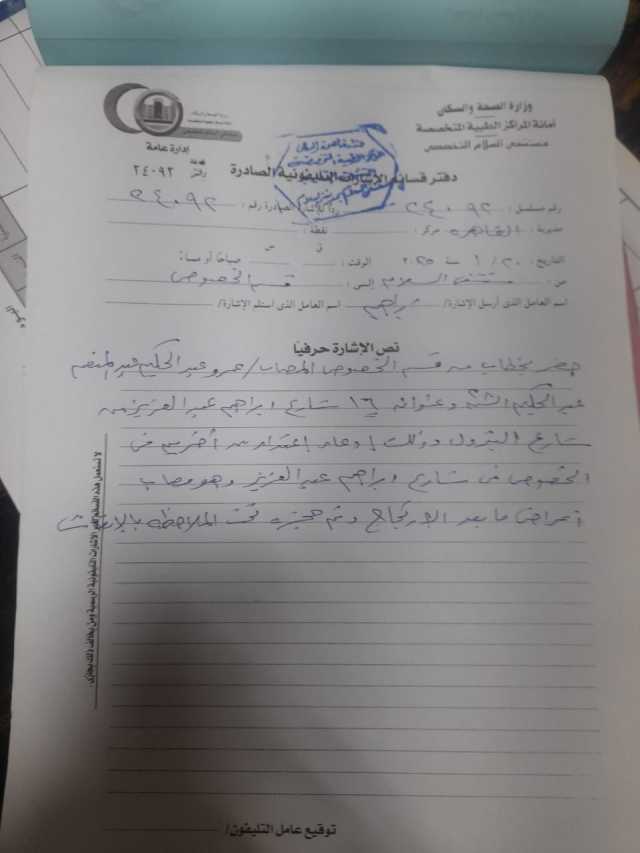 وزارة الصحة والسكان
أمانة المراكز الطبية المتخصصة
مستشفى السلام التخصصى
إدارة عامة
دفتر قسائم الإشارات التليفونية الصادرة
دفتر رقم ٢٤٠٩٢
رقم مسلسل : ٢٤٠٩٢ رداً الصادرة رقم : ٢٤٠٩٢
مديرية : القاهرة مركز : نقطة :
ق س
التاريخ : ٢٠ / ١ سنة ٢٠٢٥ الوقت : صباحاً أو مساءً :
من : مستشفى السلام إلى : قسم الخصوص
اسم العامل الذى أرسل الإشارة / إبراهيم اسم العامل الذى استلم الإشارة /
نص الإشارة حرفياً
حضر بخطاب من قسم الخصوص المصاب / عمرو عبد الحكيم عبد المنعم
عبد الحكيم وعنوانه ١٦ شارع ابراهيم عبد العزيز من
شارع البترول وذلك إدعاء إعتداء من أخرين فى
الخصوص فى شارع ابراهيم عبد العزيز وهو مصاب
أعراض ما بعد الارتجاج وتم حجزه تحت الملاحظة
لا تستعمل هذه القسائم لغير الإشارات التليفونية الرسمية ومن يخالف ذلك يجازى .
توقيع عامل التليفون /